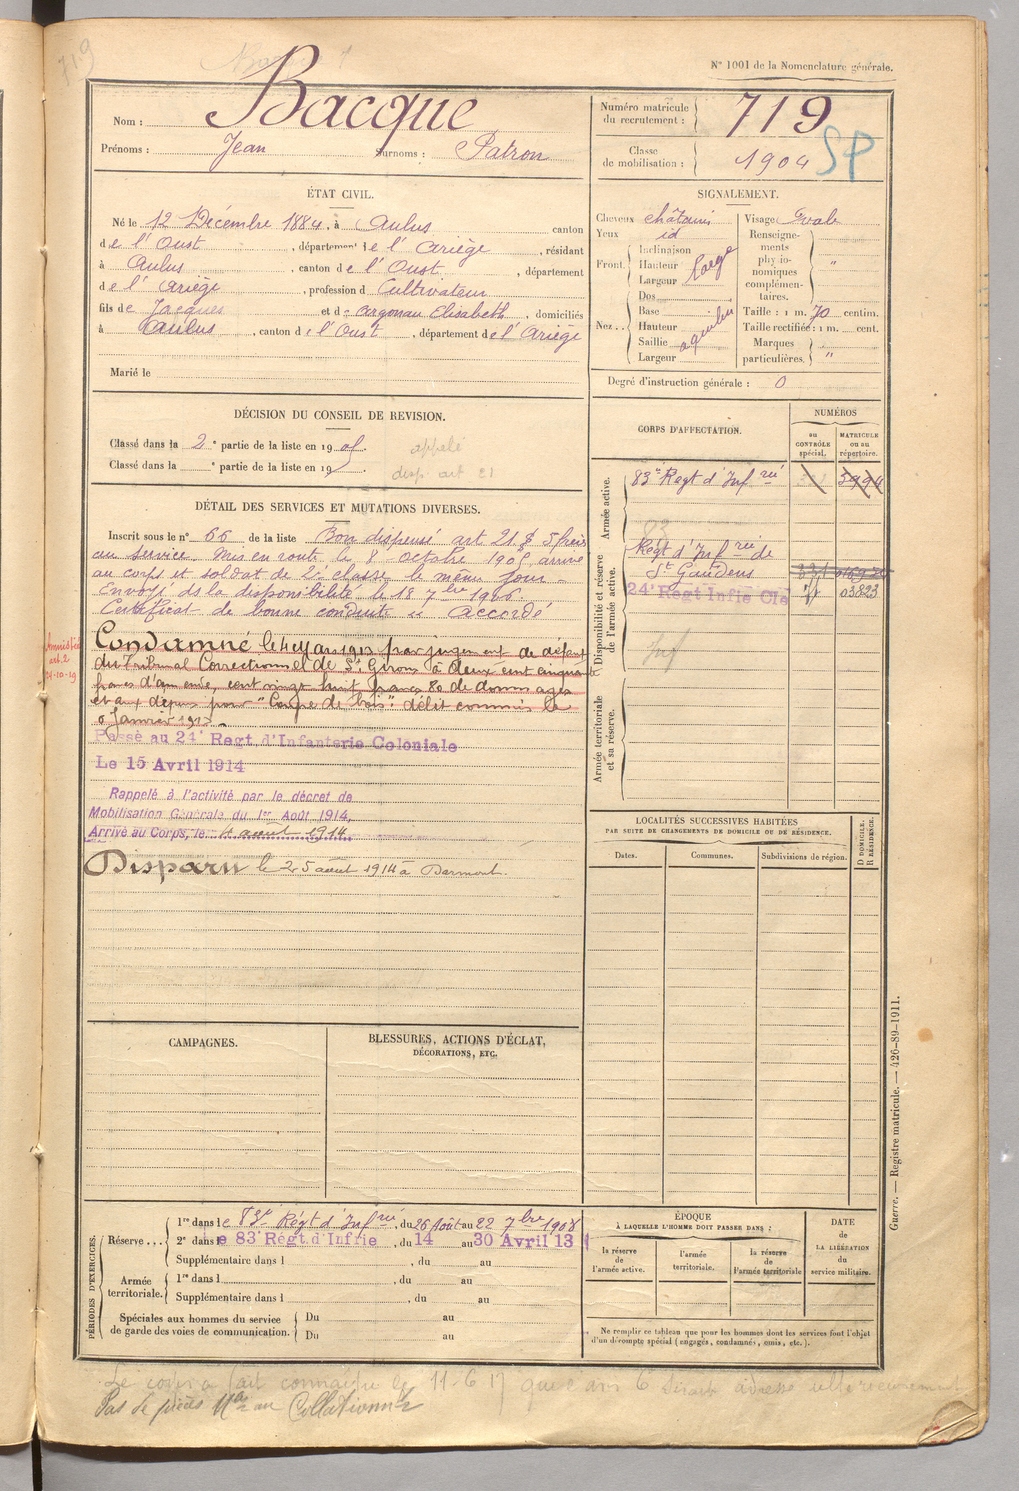 719
N° 1001 de la Nomenclature générale.
Nom : Bacque
Prénoms : Jean Surnoms : Patron
Numéro matricule du recrutement : 719
Classe de mobilisation : 1904
SP
ÉTAT CIVIL.
Né le 12 Décembre 1884, à Aulus canton
de l'Oust, département de l'Ariège, résidant
à Aulus, canton de l'Oust, département
de l'Ariège, profession d Cultivateur
fils de Jacques et d Argonau Elisabeth, domiciliés
à Aulus, canton d l'Oust, département de l'Ariège
Marié le
SIGNALEMENT.
Cheveux châtains
Yeux id
Front. Inclinaison
Hauteur
Largeur large
Nez.. Dos
Base
Hauteur
Saillie
Largeur
Visage Ovale
Renseignements physionomiques complémentaires. "
Taille : 1 m. 70 centim.
Taille rectifiée : 1 m. cent.
Marques particulières. "
Degré d'instruction générale : 0
DÉCISION DU CONSEIL DE REVISION.
Classé dans la 2e partie de la liste en 1905.
Classé dans la e partie de la liste en 19 .
appelé
disp. art 21
DÉTAIL DES SERVICES ET MUTATIONS DIVERSES.
Inscrit sous le n° 66 de la liste Bon dispensé art 21 § 5 frère
au service. Mis en route le 8 octobre 1905, arrivé
au corps et soldat de 2e classe le même jour.
Envoyé ds la disponibilité le 18 7bre 1906.
Certificat de bonne conduite "accordé"
Condamné le 4 Mars 1913 par jugement de défaut
du Tribunal Correctionnel de St Girons à deux cent cinquante
francs d'amende, cent vingt huit francs 80 de dommages
et aux dépens pour "Coupe de bois" délit commis le
Janvier 1913.
Amnistié
art. 2
24-10-19
Passé au 24e Regt d'Infanterie Coloniale
Le 15 Avril 1914
Rappelé à l'activité par le décret de
Mobilisation Générale du 1er Août 1914,
Arrivé au Corps, le 4 août 1914.
Disparu le 25 août 1914 à
CORPS D'AFFECTATION.
NUMÉROS
au CONTRÔLE spécial.
MATRICULE ou au répertoire.
Armée active.
83e Regt d'Infrie 5994
Disponibilité et réserve de l'armée active.
83
Régt d'Infrie de
St Gaudens
24e Regt Infie Cle 03823
Inf
Armée territoriale et sa réserve.
LOCALITÉS SUCCESSIVES HABITÉES
PAR SUITE DE CHANGEMENTS DE DOMICILE OU DE RÉSIDENCE.
Dates. Communes. Subdivisions de région. D DOMICILE. R RÉSIDENCE.
CAMPAGNES.
BLESSURES, ACTIONS D'ÉCLAT,
DÉCORATIONS, ETC.
PÉRIODES D'EXERCICES.
Réserve...
1re dans le 83e Régt d'Infrie, du 26 Août au 22 7bre 1908
2e dans le 83e Régt d'Infrie, du 14 au 30 Avril 13
Supplémentaire dans l , du au
Armée territoriale.
1re dans l , du au
Supplémentaire dans l , du au
Spéciales aux hommes du service de garde des voies de communication.
Du au
Du au
ÉPOQUE
À LAQUELLE L'HOMME DOIT PASSER DANS :
la réserve de l'armée active.
l'armée territoriale.
la réserve de l'armée territoriale
DATE de LA LIBÉRATION du service militaire.
Ne remplir ce tableau que pour les hommes dont les services font l'objet
d'un décompte spécial (engagés, condamnés, omis, etc.).
Guerre. — Registre matricule. — 426-89-1911.
Le corps a fait connaître le 11-6-17 que adressé ultérieurement
Pas de pièces